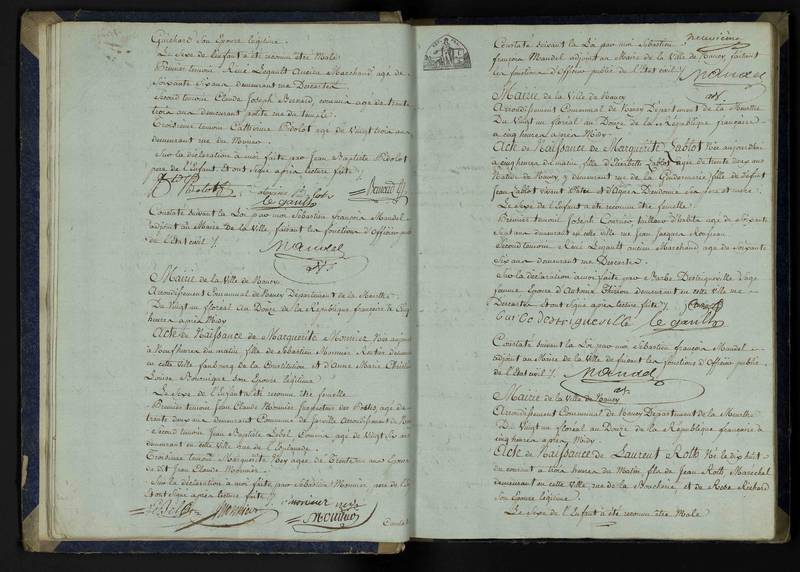 Guichard son Epouse légitime.
Le Sexe de l'enfant a été reconnu être Male.
Premier temoin René Legault Ancien Marchand agé de
Soixante Six ans demeurant rue Descartes
Second temoin Claude Joseph Bernard, commis agé de trente
trois ans demeurant petite rue du temple
Troisieme temoin Catherine Pidolot agé de Vingt trois ans
demeurant rue de
Sur la déclaration à moi faite par Jean Baptiste Pidolot
pere de l'Enfant Et ont Signé après lecture faite
Pidolot
le gault
Bernard
Constaté suivant la Loi par moi Sébastien françois Mandel
adjoint au Maire de la Ville, faisant les fonctions d'Officier public
de l'Etat civil
Mandel
adt.
Mairie de la Ville de Nancy
Arrondissement Communal de Nancy Département de la Meurthe
Du Vingt un floreal an Douze de la République françoise à Cinq
heures après Midy
Acte de Naissance de Marguerite Monnier Née aujourd'hui
à Neuf heures du matin, fille de Sébastien Monnier Rentier demeurant
en cette Ville faubourg de la Constitution et d'Anne Marie Christine
Louise son Epouse légitime
Le Sexe de l'Enfant a été reconnu être femelle
Premier temoin Jean Claude Monnier Inspecteur des Postes, agé de
trente deux ans demeurant Commune de Arrondissement de Nancy
Second temoin Jean Baptiste Lobel Commis agé de Vingt Six ans
demeurant en cette Ville rue de l'Esplanade
Troisieme temoin Marguerite Ney agée de Trente un ans Epouse
du dit Jean Claude Monnier.
Sur la déclaration à moi faite par Sébastien Monnier pere de l'Enfant
Et ont Signé après lecture faite
Monnier
monnier ney
Monnier
Constaté
neuvième
Constaté suivant la Loi par moi Sébastien
françois Mandel adjoint au Maire de la Ville de Nancy faisant
les fonctions d'Officier public de l'Etat civil
Mandel
adt.
Mairie de la Ville de Nancy
Arrondissement Communal de Nancy Département de la Meurthe
Du Vingt un floréal an Douze de la République françoise
à cinq heures après Midy
Acte de Naissance de Marguerite Zablot Née aujourd'hui
à cinq heures du matin, fille d'Elisabeth Zablot agé de trente deux ans
Native de Nancy y demeurant rue de la Gendarmerie fille de défunt
Jean Zablot vivant et d'Agnès Dieudonné ses pere et mere.
Le Sexe de l'Enfant a été reconnu être femelle.
Premier temoin Joseph Courrier tailleur d'habits agé de Soixante
Sept ans demeurant en cette Ville rue Jean Jacques Rousseau
Second temoin René Legault ancien Marchand agé de Soixante
Six ans demeurant rue Descartes.
Sur la déclaration à moi faite par Barbe Destrigueville Sage
femme Epouse d'Antoine demeurant en cette Ville rue
Descartes Et ont Signé après lecture faite
destrigueville le gault
Constaté suivant la Loi par moi Sébastien françois Mandel
adjoint au Maire de la Ville faisant les fonctions d'Officier public
de l'Etat civil
Mandel
adt.
Mairie de la Ville de Nancy
Arrondissement Communal de Nancy Département de la Meurthe
Du Vingt un floréal an Douze de la République françoise à
cinq heures après Midy
Acte de Naissance de Laurent Roth Né le dix huit
du courant à trois heures du Matin, fils de Jean Roth Maréchal
demeurant en cette Ville, rue de la Boucherie et de Rose Richard
son Epouse légitime.
Le Sexe de l'Enfant a été reconnu être Male